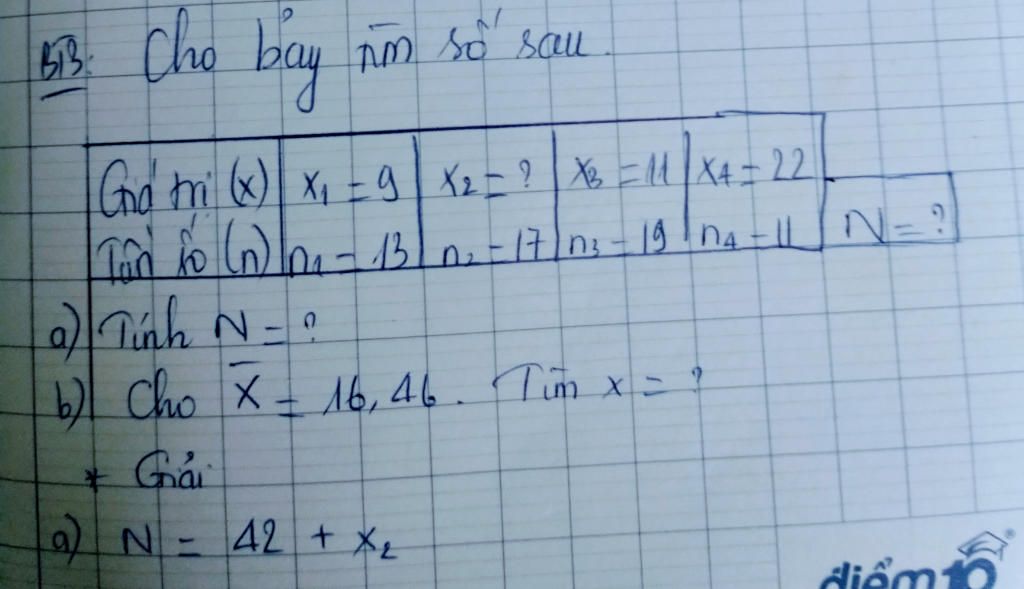 B3: Cho bảy nm số sau.
Giá trị (x) x₁ = 9 x₂ = ? x₃ = 11 x₄ = 22
Tần số (n) n₁ = 13 n₂ = 17 n₃ = 19 n₄ = 11 N = ?
a) Tính N = ?
b) Cho X̅ = 16,46. Tìm x = ?
* Giải
a) N = 42 + x₂
điểm 10